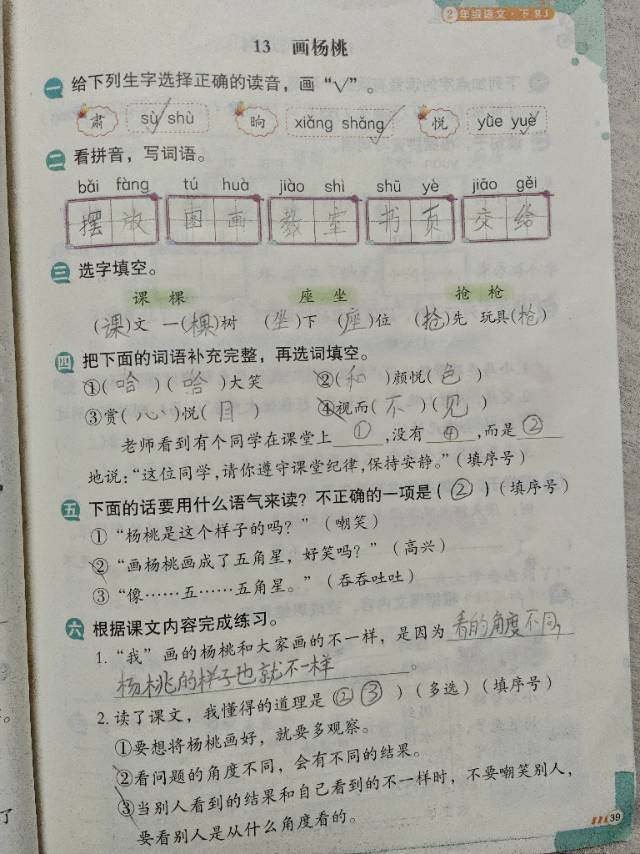 2年级语文·下 RJ
13 画杨桃
一 给下列生字选择正确的读音,画“√”。
肃 sù√ shù 晌 xiǎng shǎng√ 悦 yūe yuè√
二 看拼音,写词语。
bǎi fàng tú huà jiào shì shū yè jiāo gěi
摆放 图画 教室 书页 交给
三 选字填空。
课 棵 座 坐 抢 枪
(课)文 一(棵)树 (坐)下 (座)位 (抢)先 玩具(枪)
四 把下面的词语补充完整,再选词填空。
①(哈)(哈)大笑 ②(和)颜悦(色)
③赏(心)悦(目) ④视而(不)(见)
老师看到有个同学在课堂上①,没有④,而是②
地说:“这位同学,请你遵守课堂纪律,保持安静。”(填序号)
五 下面的话要用什么语气来读?不正确的一项是(②)(填序号)
①“杨桃是这个样子的吗?”(嘲笑)
②“画杨桃画成了五角星,好笑吗?”(高兴)
③“像……五……五角星。”(吞吞吐吐)
六 根据课文内容完成练习。
1.“我”画的杨桃和大家画的不一样,是因为看的角度不同,
杨桃的样子也就不一样。
2.读了课文,我懂得的道理是 ② ③ )(多选)(填序号)
①要想将杨桃画好,就要多观察。
②看问题的角度不同,会有不同的结果。
③当别人看到的结果和自己看到的不一样时,不要嘲笑别人,
要看别人是从什么角度看的。
39